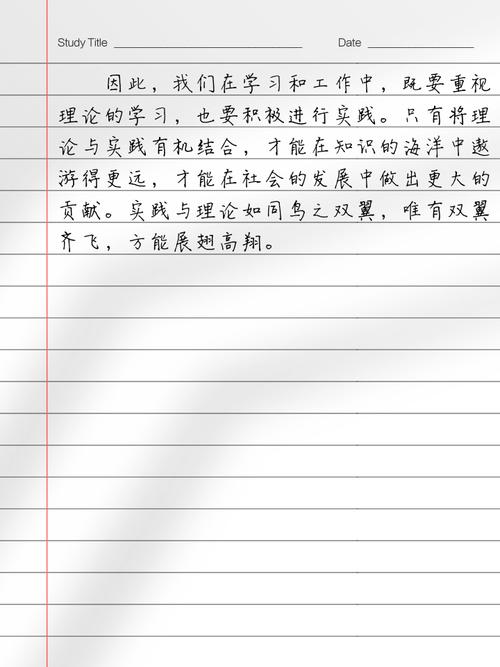 Study Title
Date
因此，我们在学习和工作中，既要重视
理论的学习，也要积极进行实践。只有将理
论与实践有机结合，才能在知识的海洋中遨
游得更远，才能在社会的发展中做出更大的
贡献。实践与理论如同鸟之双翼，唯有双翼
齐飞，方能展翅高翔。